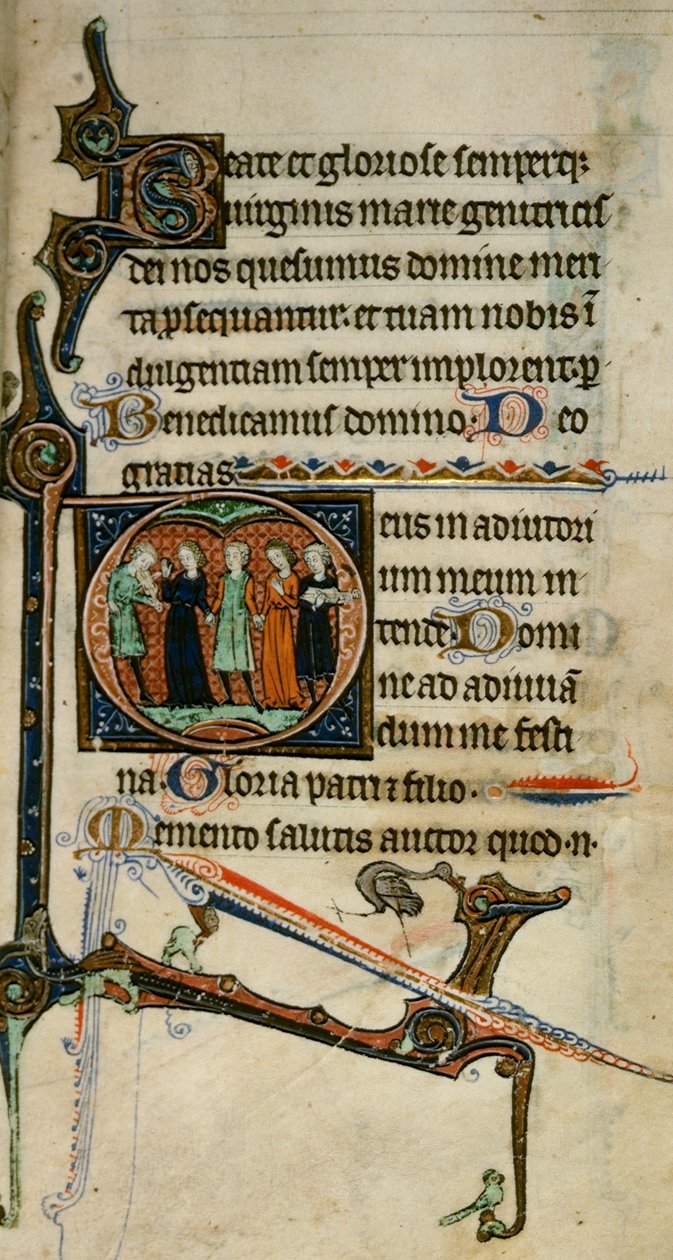 Beate et gloriose semperq;
uirginis marie genitricis
dei nos quesumus domine meri
ta ꝓsequantur. et tuam nobis ī
dulgentiam semper implorent. ꝑ
Benedicamus domino. Deo
gratias.
Deus in adiutori
um meum in
tende. Domi
ne ad adiuuā
dum me festi
na. Gloria patri ⁊ filio.
Memento salutis auctor quod .n.